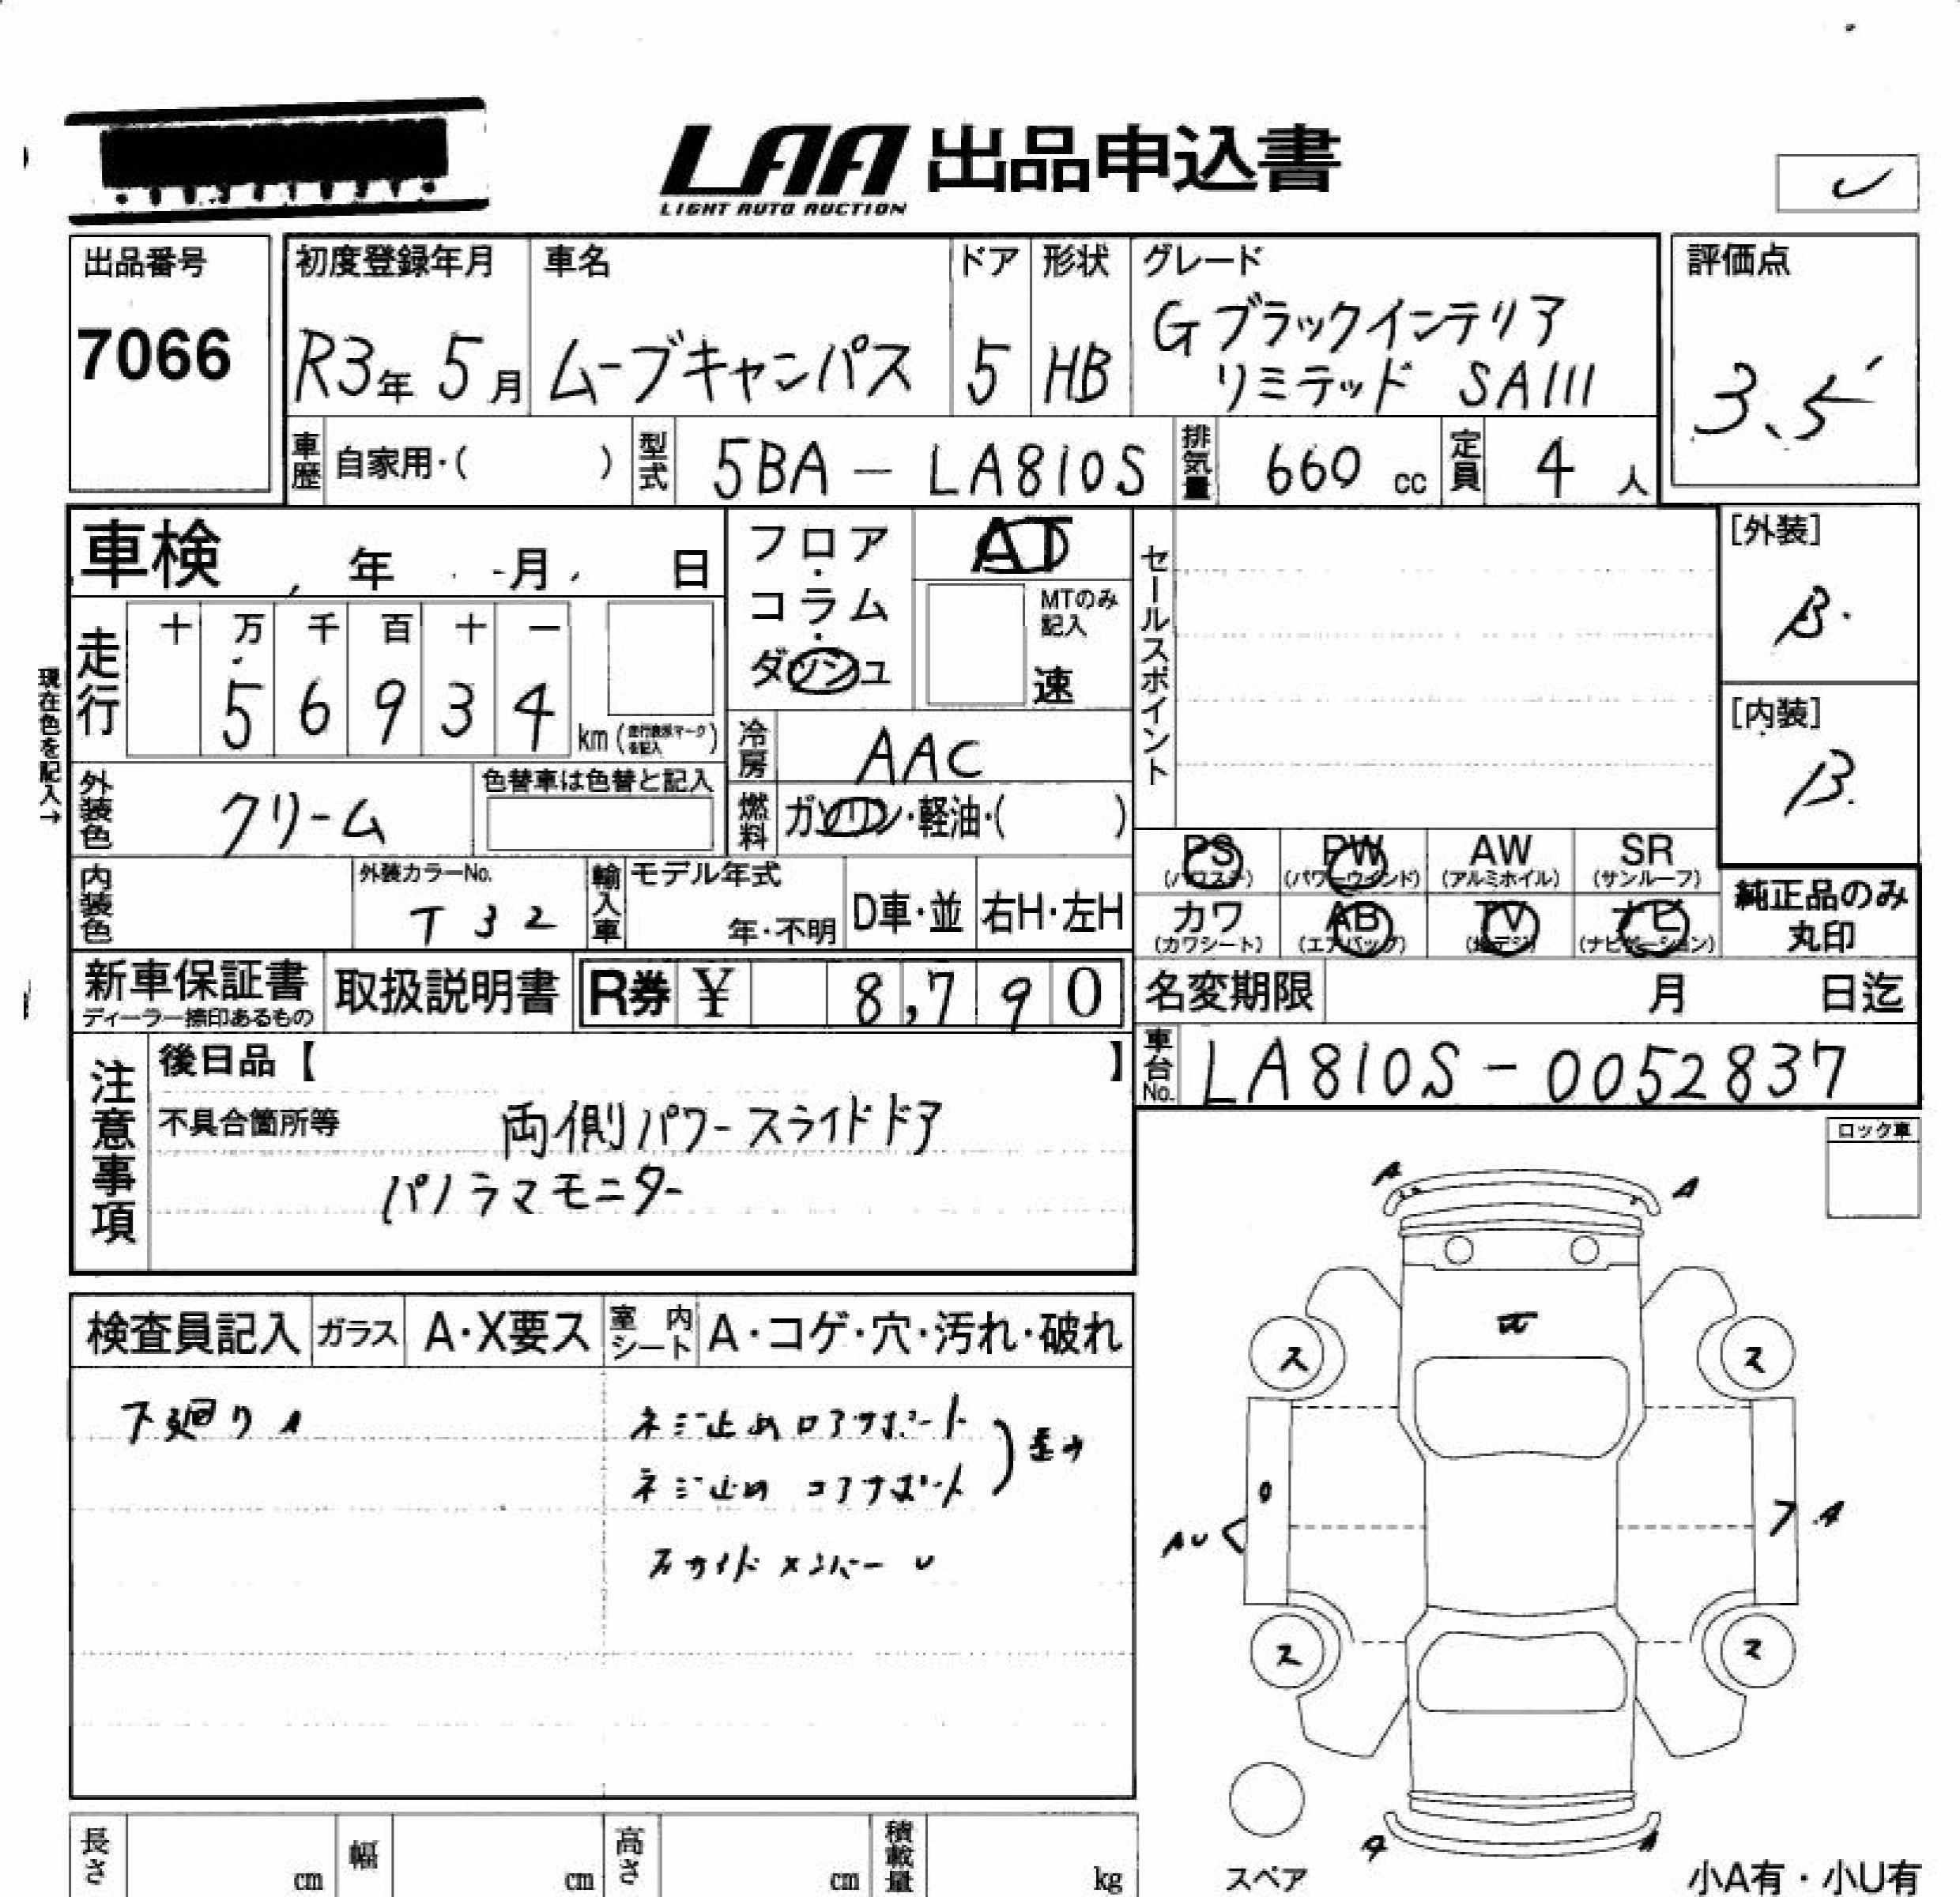 LAA 出品申込書
LIGHT AUTO AUCTION
出品番号
7066
初度登録年月
R3年 5月
車名
ムーブキャンパス
ドア
5
形状
HB
グレード
Gブラックインテリア
リミテッド SAIII
評価点
3.5
車歴 自家用・( )
型式 5BA-LA810S
排気量 660 cc
定員 4 人
車検 年 月 日
フロア・コラム・ダッシュ
AT
MTのみ記入
速
セールスポイント
[外装]
B.
[内装]
B.
現在色を記入→
走行
十 万 千 百 十 一
5 6 9 3 4
km (走行表示マークを記入)
冷房 AAC
燃料 ガソリン・軽油・( )
外装色 クリーム
色替車は色替と記入
内装色
外装カラーNo.
T32
輸入車
モデル年式
年・不明
D車・並
右H・左H
PS (パワステ)
PW (パワーウィンド)
AW (アルミホイル)
SR (サンルーフ)
カワ (カワシート)
AB (エアバッグ)
TV (地デジ)
ナビ (ナビゲーション)
純正品のみ
丸印
新車保証書
ディーラー捺印あるもの
取扱説明書
R券 ¥ 8,790
名変期限 月 日迄
車台No. LA810S-0052837
注意事項
後日品【 】
不具合箇所等 両側パワースライドドア
パノラマモニター
ロック車
検査員記入
ガラス A・X要ス
室内シート A・コゲ・穴・汚れ・破れ
下廻り
ネジ止めロアサポート
ネジ止めコアサポート
サイドメンバー
A A
ス ス
AU
A
ス ス
スペア
小A有・小U有
長さ cm
幅 cm
高さ cm
積載量 kg